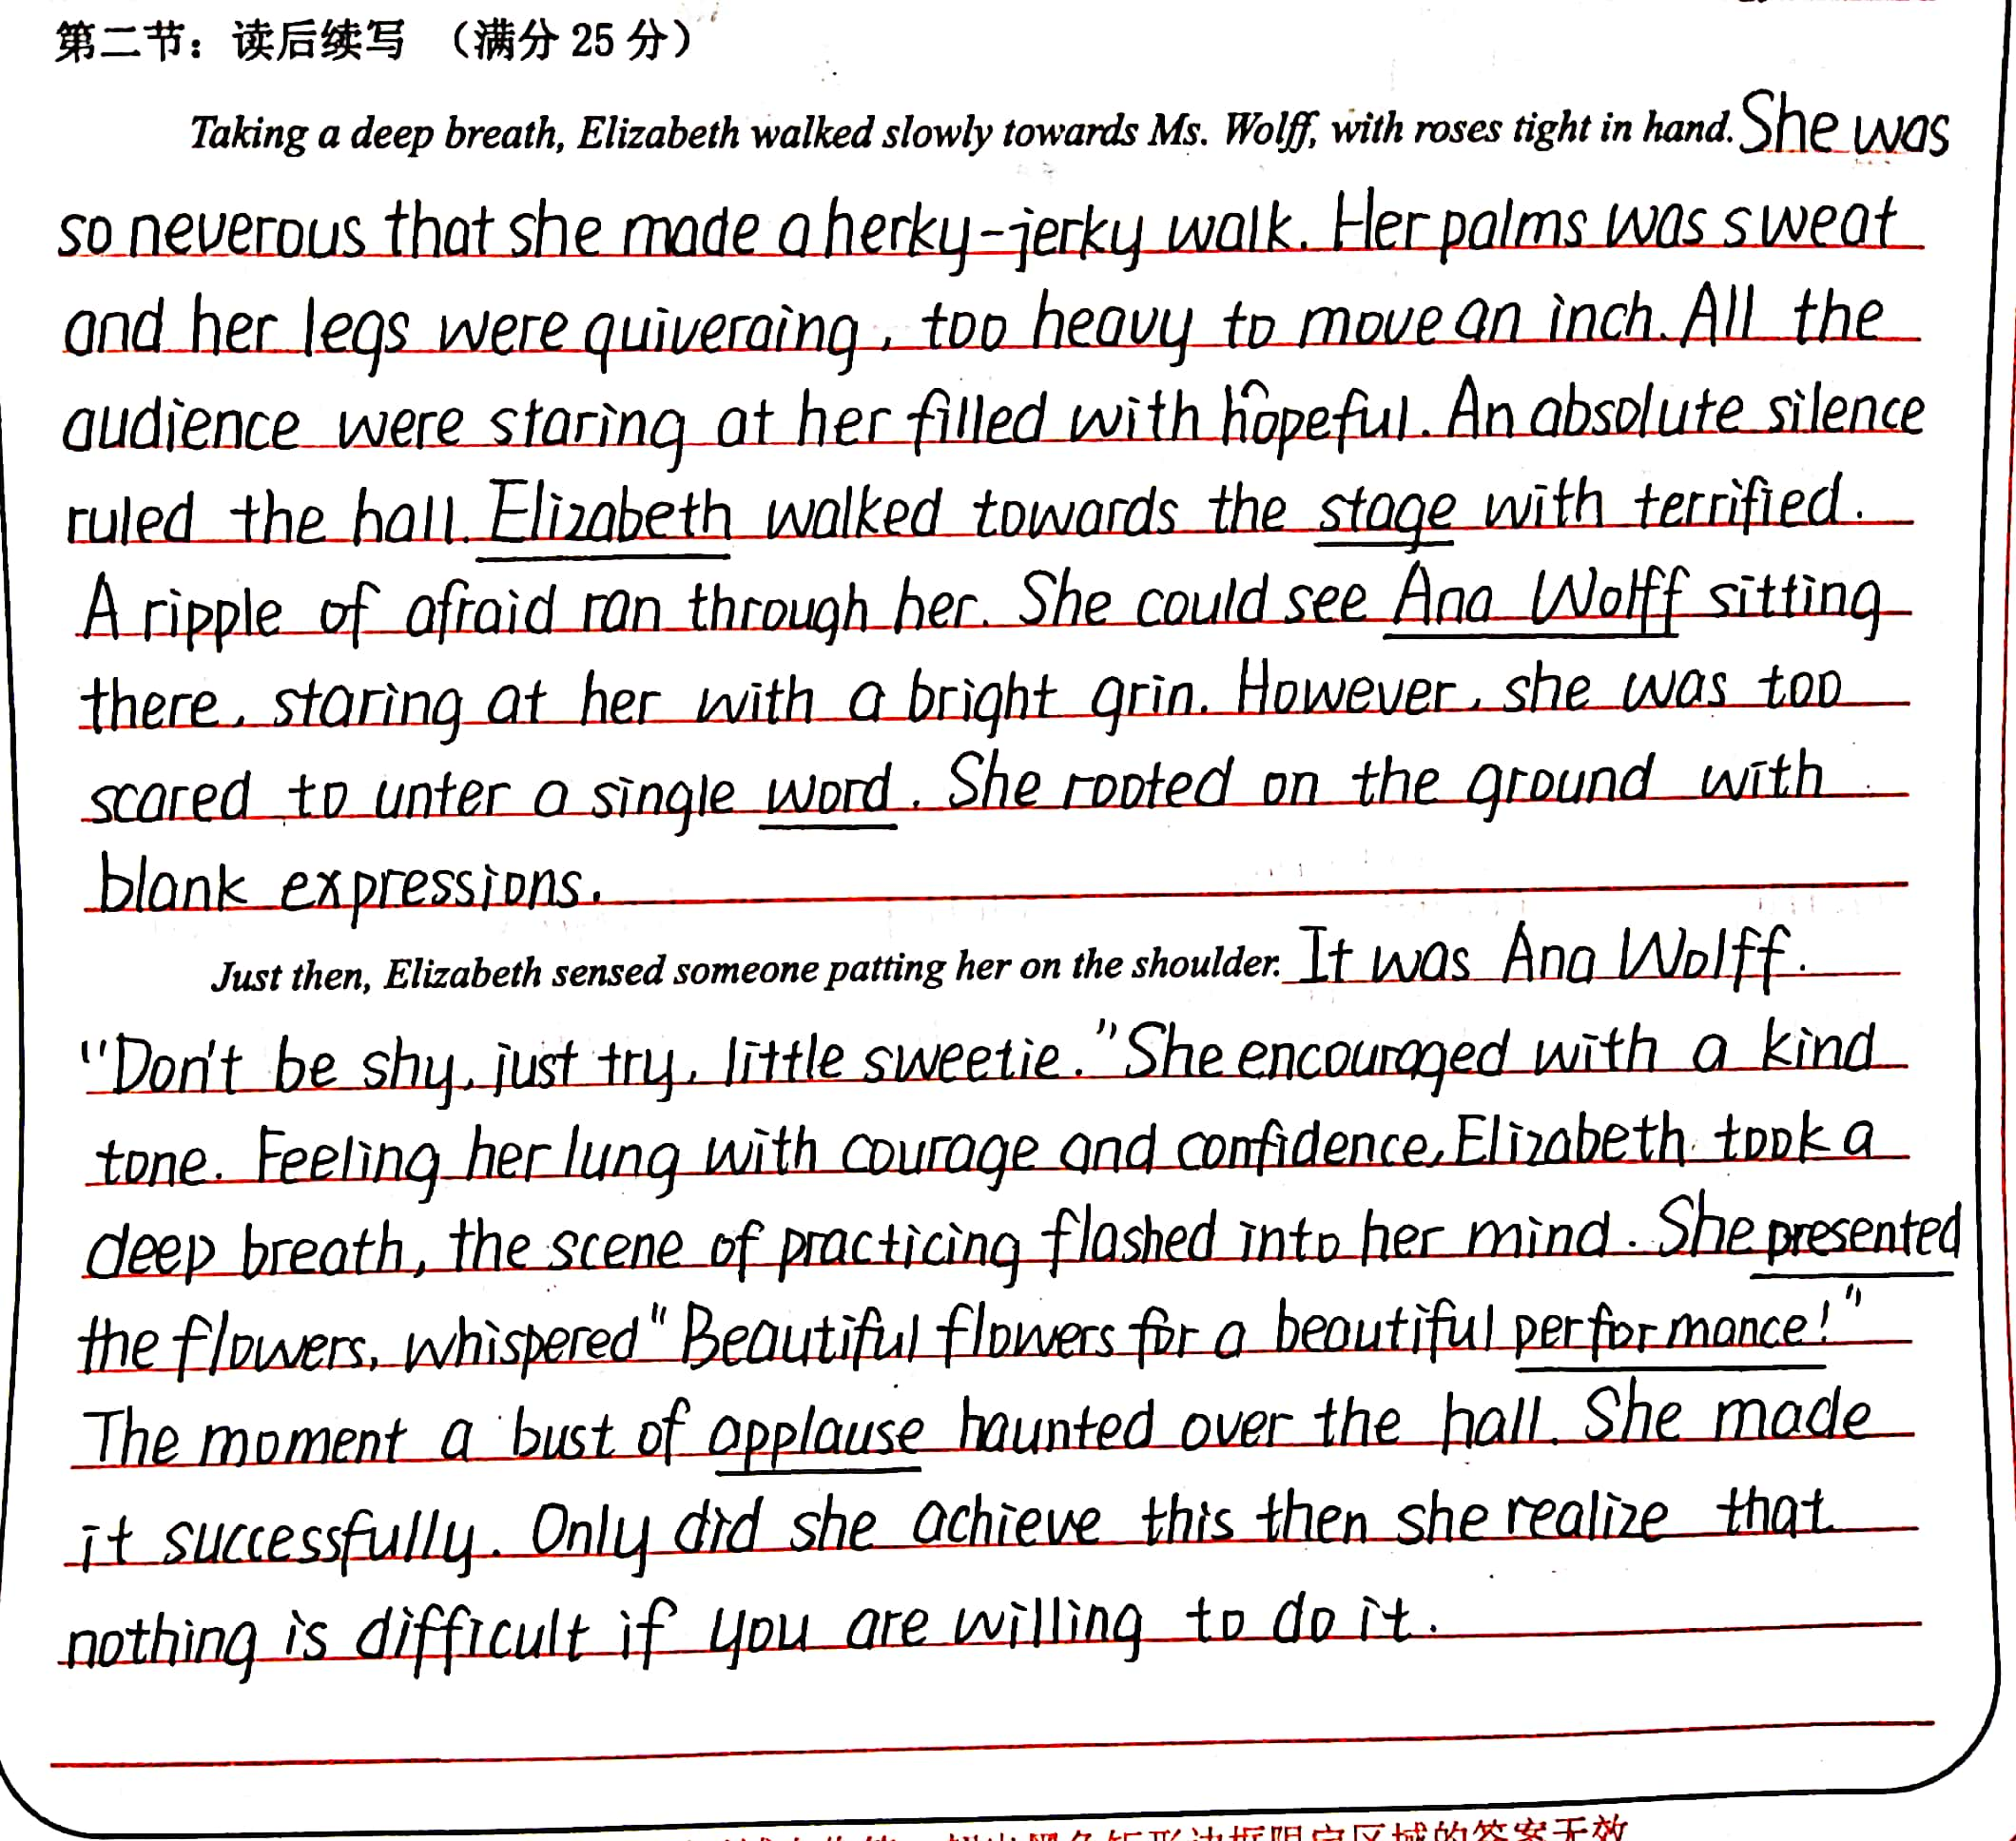 第二节：读后续写 （满分 25 分）
Taking a deep breath, Elizabeth walked slowly towards Ms. Wolff, with roses tight in hand. She was
so neverous that she made a herky-jerky walk. Her palms was sweat
and her legs were quiveraing, too heavy to move an inch. All the
audience were staring at her filled with hopeful. An absolute silence
ruled the hall. Elizabeth walked towards the stage with terrified.
A ripple of afraid ran through her. She could see Ana Wolff sitting
there, staring at her with a bright grin. However, she was too
scared to unter a single word. She rooted on the ground with
blank expressions.
Just then, Elizabeth sensed someone patting her on the shoulder. It was Ana Wolff.
"Don't be shy, just try, little sweetie." She encouraged with a kind
tone. Feeling her lung with courage and confidence, Elizabeth took a
deep breath, the scene of practicing flashed into her mind. She presented
the flowers, whispered "Beautiful flowers for a beautiful performance!"
The moment a bust of applause haunted over the hall. She made
it successfully. Only did she achieve this then she realize that
nothing is difficult if you are willing to do it.
黑色矩形边框限定区域的答案无效